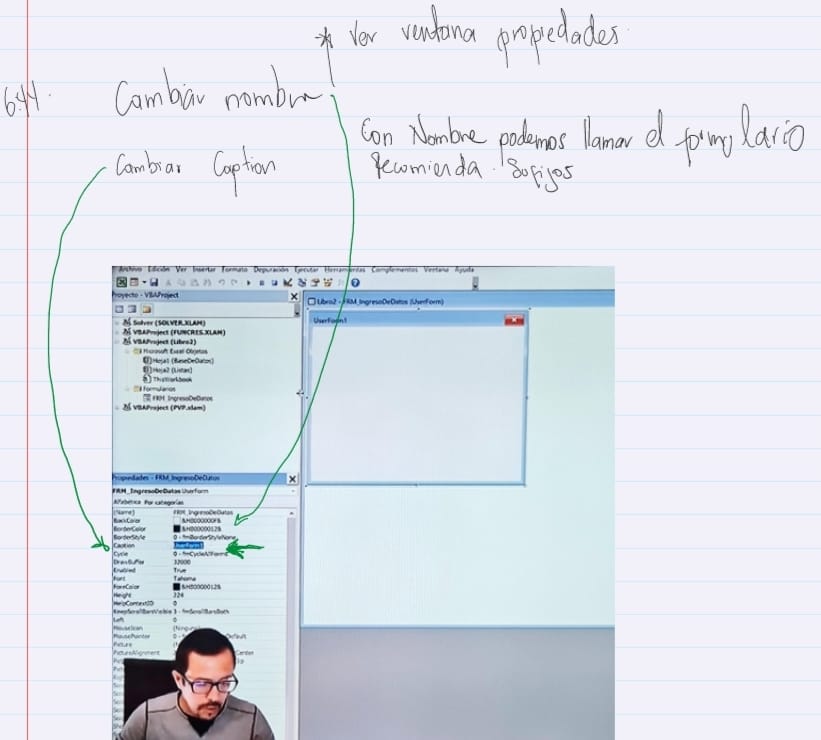 * Ver ventana propiedades.
6:44.
Cambiar nombre
Con Nombre podemos llamar el formulario
Recomienda. Sufijos
Cambiar Caption
Archivo Edición Ver Insertar Formato Depuración Ejecutar Herramientas Complementos Ventana Ayuda
Proyecto - VBAProject
Solver (SOLVER.XLAM)
VBAProject (FUNCRES.XLAM)
VBAProject (Libro2)
Microsoft Excel Objetos
Hoja1 (BaseDeDatos)
Hoja2 (Listas)
ThisWorkbook
Formularios
FRM_IngresoDeDatos
VBAProject (PVP.xlam)
Libro2 - FRM_IngresoDeDatos (UserForm)
UserForm1
Propiedades - FRM_IngresoDeDatos
FRM_IngresoDeDatos UserForm
Alfabética Por categorías
(Name) FRM_IngresoDeDatos
BackColor
BorderColor &H80000012&
BorderStyle 0 - fmBorderStyleNone
Caption UserForm1
Cycle 0 - fmCycleAllForms
DrawBuffer 32000
Enabled True
Font Tahoma
ForeColor &H80000012&
Height 224
HelpContextID 0
KeepScrollBarsVisible 3 - fmScrollBarsBoth
Left 0
MouseIcon
MousePointer
Picture
PictureAlignment